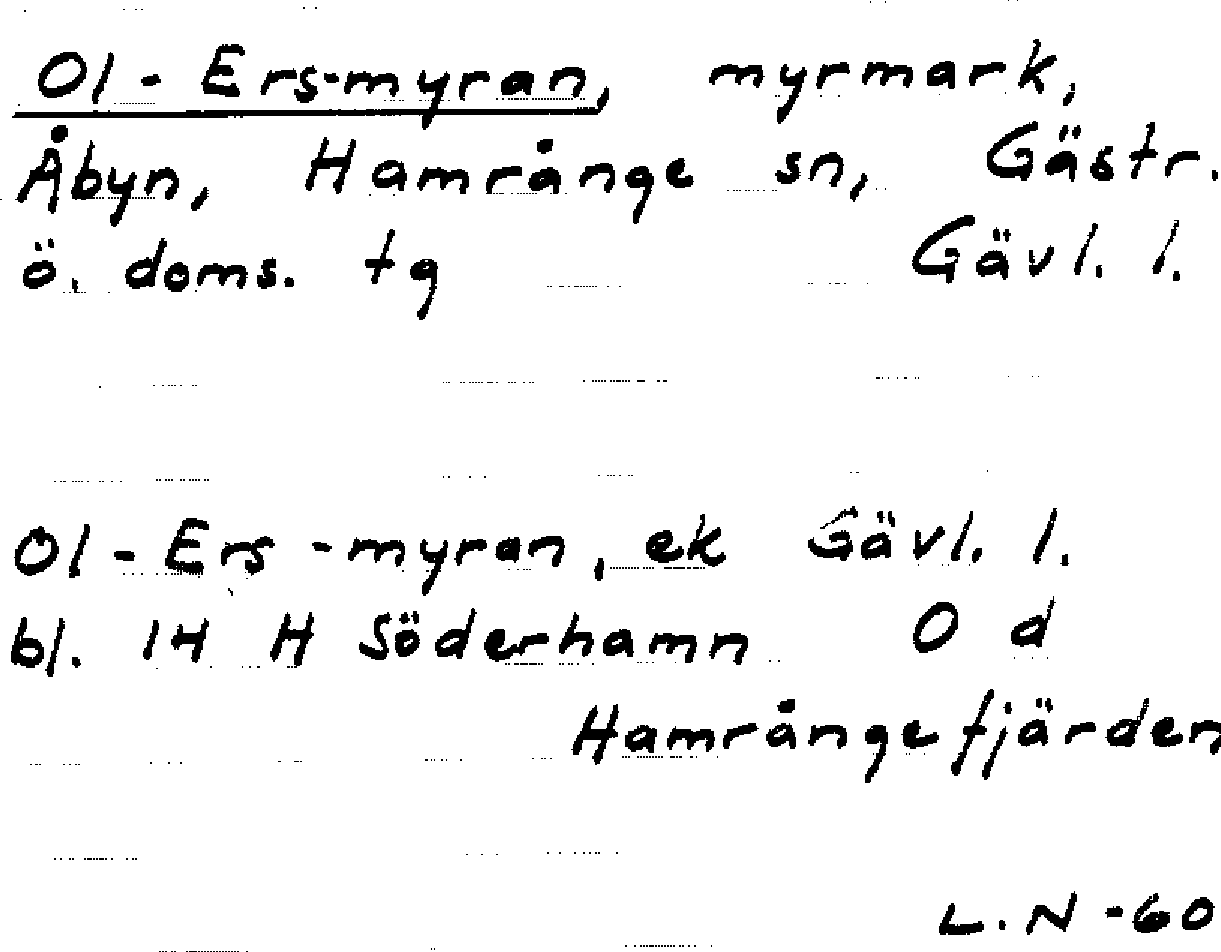 Ol-Ers-myran, myrmark,
Åbyn, Hamrånge sn, Gästr.
ö. doms. tg Gävl. l.
Ol-Ers-myran, ek Gävl. l.
bl. 14 H Söderhamn O d
Hamrångefjärden
L. N -60